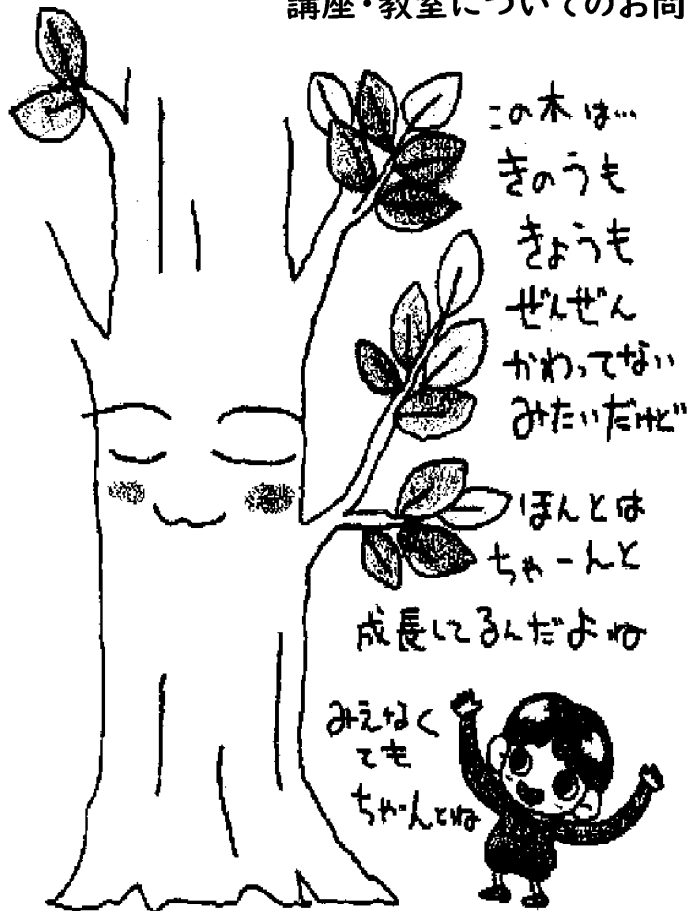 講座・教室についてのお問
この木は…
きのうも
きょうも
ぜんぜん
かわってない
みたいだけど
ほんとは
ちゃーんと
成長してるんだよね
みえなく
ても
ちゃーんとね